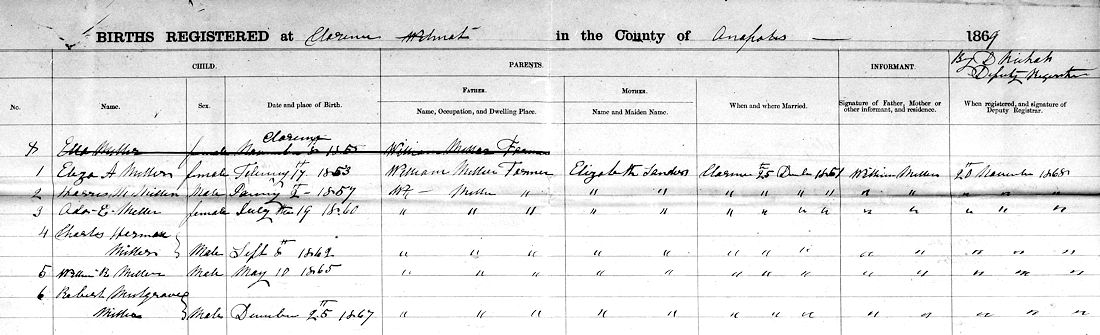 BIRTHS REGISTERED at Clarence Wilmot in the County of Anapolis 1869
By D
Deputy Registrar
CHILD. PARENTS. INFORMANT.
FATHER. MOTHER.
No. Name. Sex. Date and place of Birth. Name, Occupation, and Dwelling Place. Name and Maiden Name. When and where Married. Signature of Father, Mother or other informant, and residence. When registered, and signature of Deputy Registrar.
Clarence
Ella Miller female November 8 1855 William Miller Farmer
1 Eliza A Miller female Febuary 17 1853 William Miller Farmer Elizabeth Sanders Clarence 25 1851 William Miller 20 November 1868
2 Harris H Miller Male 1857 Wm Miller " " " " " " " " " " " "
3 Ada E Miller female July the 19 1860 " " " " " " " " " " " " "
4 Charles Herman
Miller Male Sept 8th 1862 " " " " " " " " " " " "
5 William B Miller Male May 10 1865 " " " " " " " " " " " "
6 Robert Musgrave
Miller Male December 25th 1867 " " " " " " " " " " " "